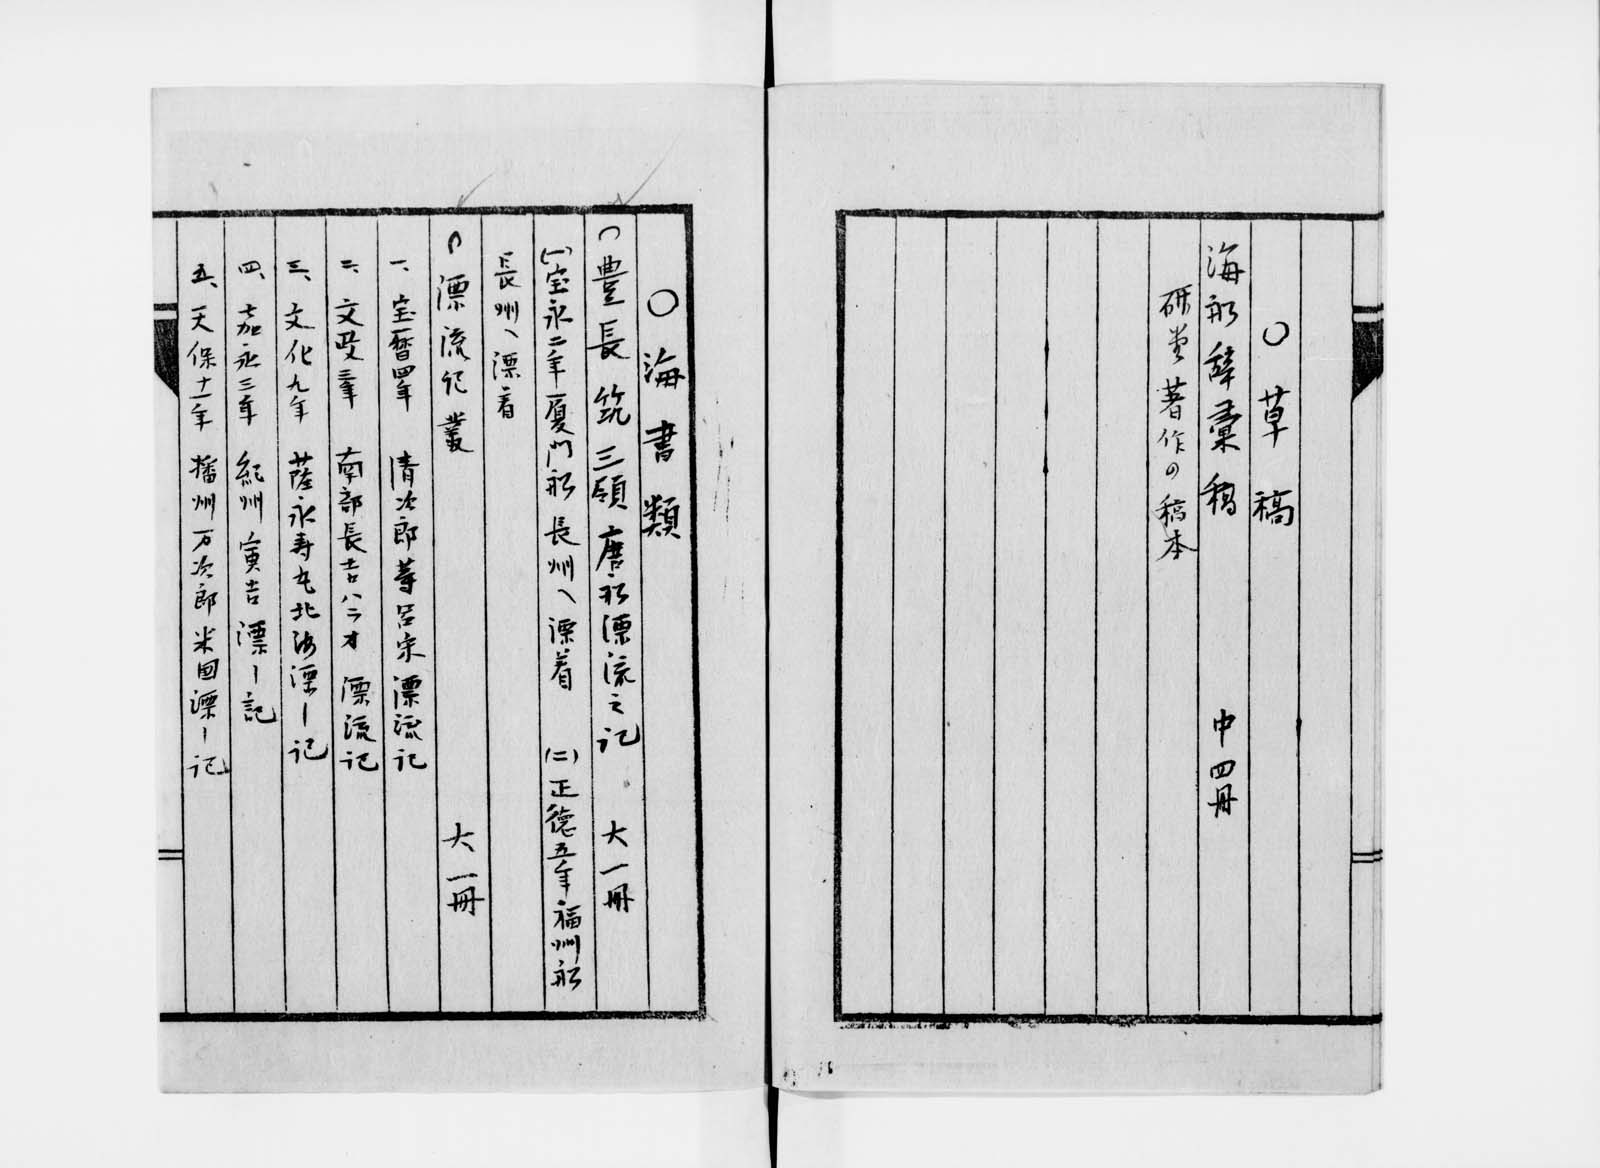 ○草稿
海舩辞彙稿 中四冊
研堂著作の稿本
○海書類
豊長筑三領唐舩漂流之記 大一冊
(一)宝永二年厦門舩長州へ漂着 (二)正徳五年福州舩
長州へ漂着
漂流記叢 大一冊
一、宝暦四年 清次郎等呂宋漂流記
二、文政三年 南部長吉八ニオ漂流記
三、文化九年 薩永寿丸北海漂〡記
四、嘉永三年 紀州寅吉漂〡記
五、天保十二年 播州万次郎米国漂〡記